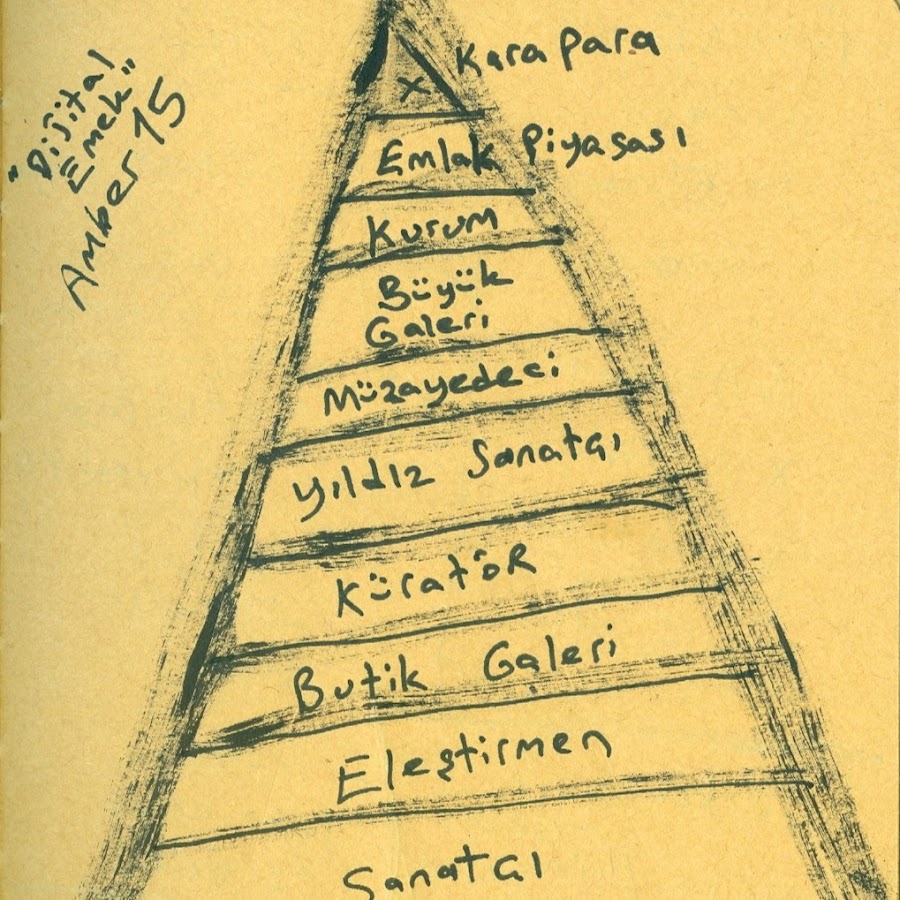 "Dijital
Emek"
Amber 15
Kara Para
X
Emlak Piyasası
Kurum
Büyük
Galeri
Müzayedeci
Yıldız Sanatçı
Küratör
Butik Galeri
Eleştirmen
Sanatçı